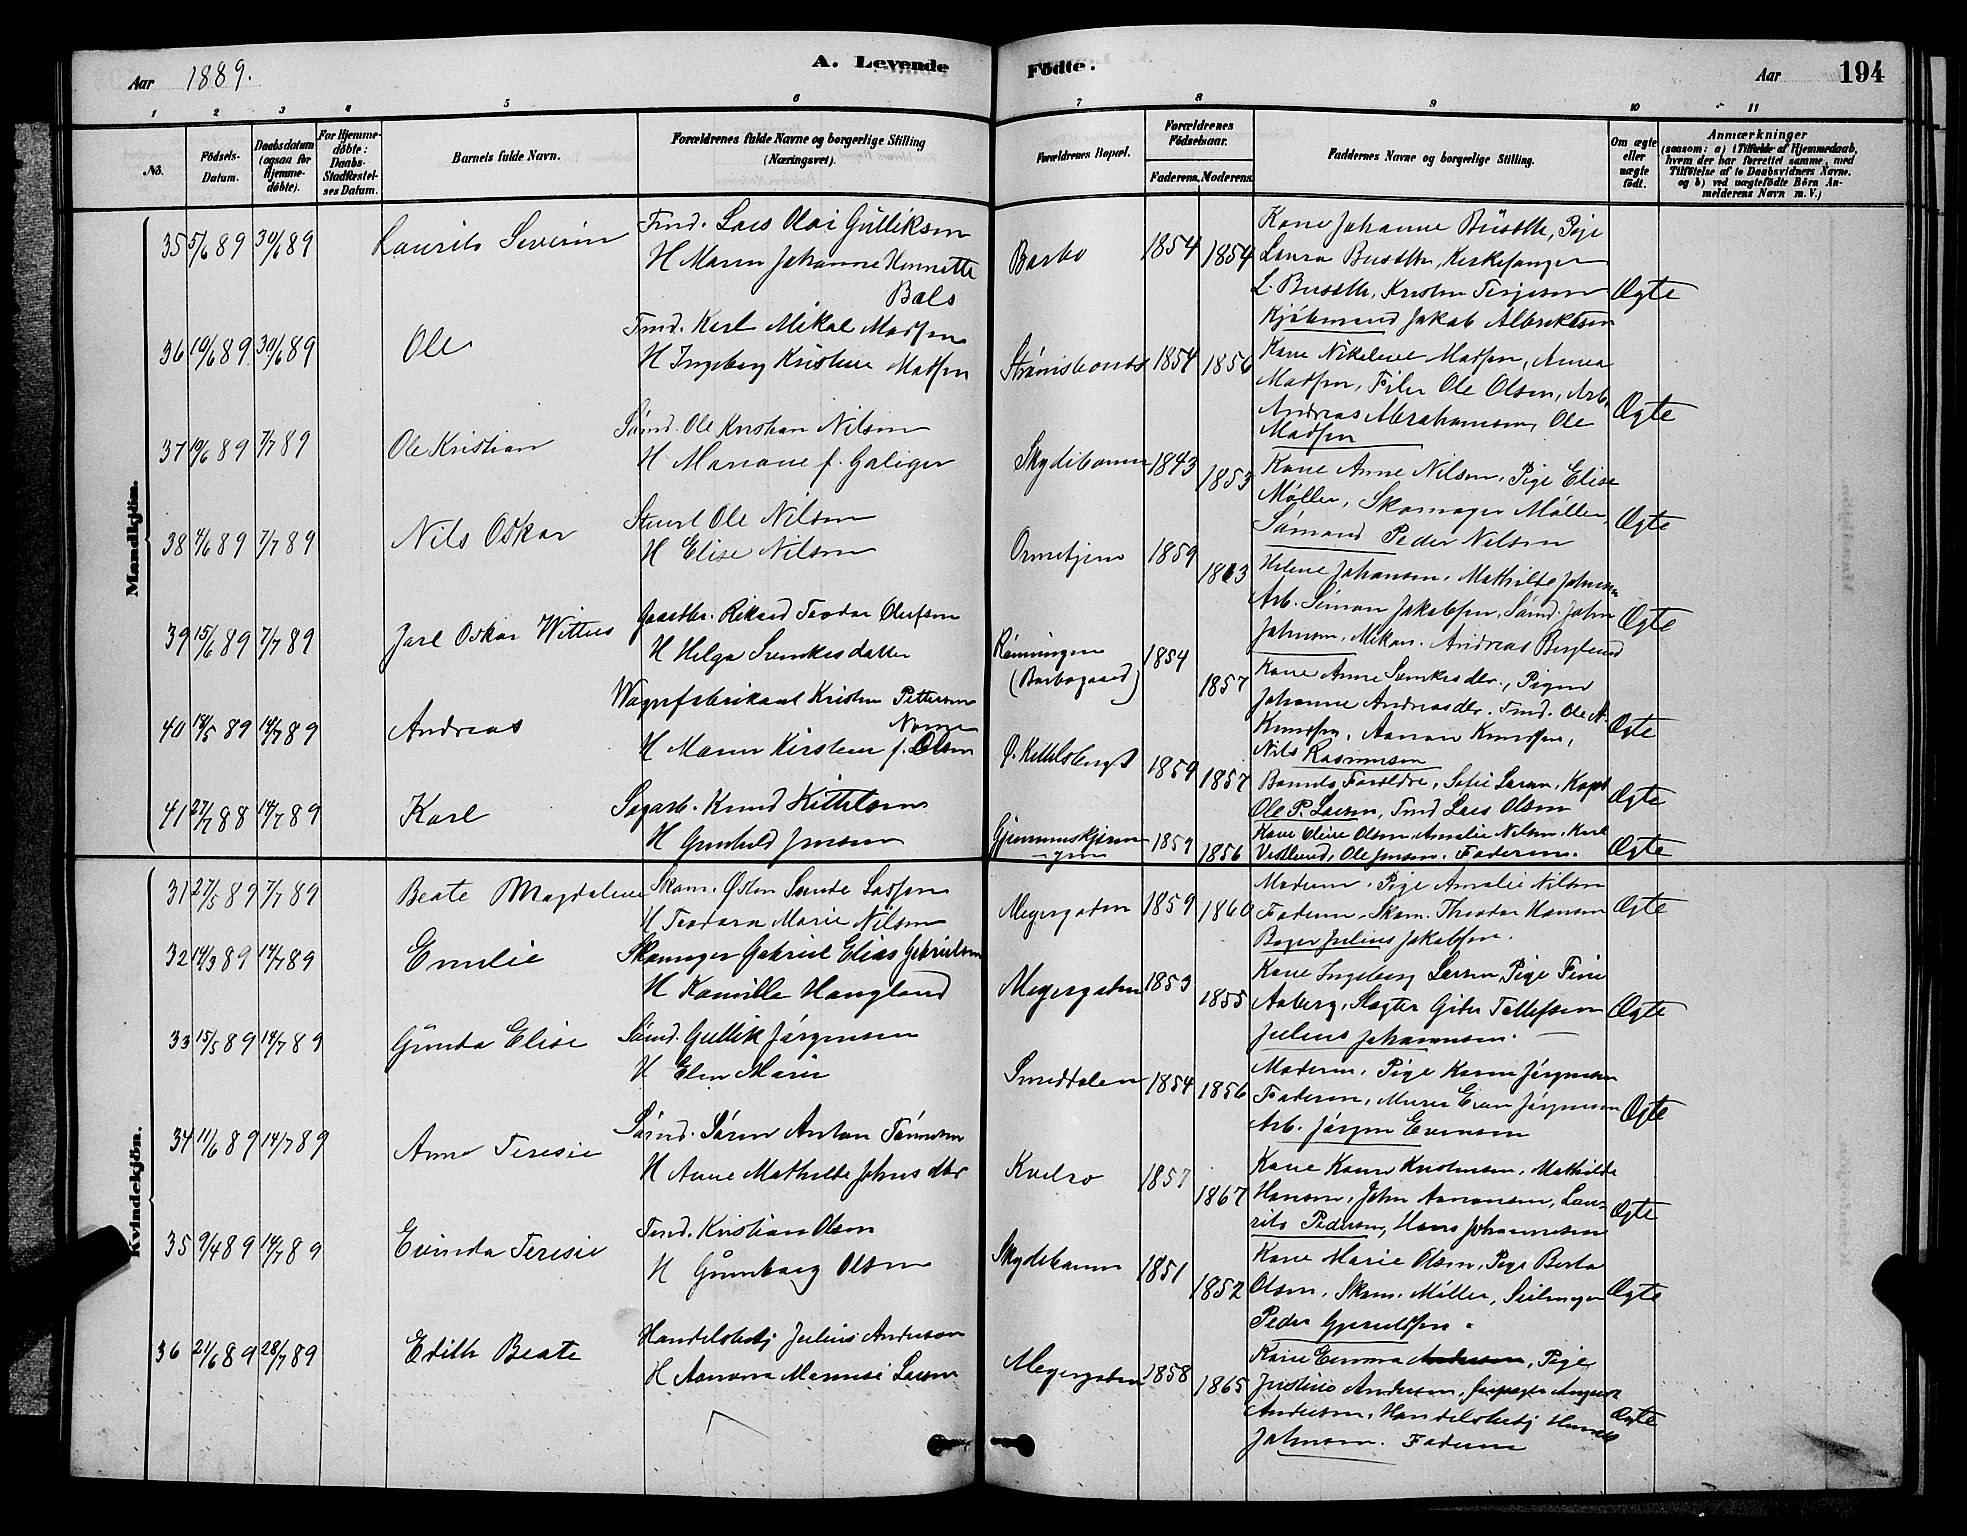 Aar 1889.
A. Levende
Födte.
Aar
194
1 2 3 4 5 6 7 8 9 10 11
No.
Födsels-
Datum.
Daabsdatum
(ogsaa for
Hjemme-
döbte).
For Hjemme-
döbte:
Daabs-
Stadfæstel-
ses Datum.
Barnets fulde Navn.
Forældrenes fulde Navne og borgerlige Stilling
(Næringsvei).
Forældrenes Bopæl.
Forældrenes
Födselsaar.
Faderens. Moderens.
Faddernes Navne og borgerlige Stilling.
Om ægte
eller
uægte
födt.
Anmærkninger
(saasom: a) i Tilfælde af Hjemmedaab,
hvem der har forrettet samme, med
Tilföielse af to Daabsvidners Navne.
og b) ved uægtefödte Börn An-
melderens Navn m. V.)
Mandkjön.
35 5/6 89 30/6 89 Laurits Severin
Tmd. Lars Olai Gulliksen
H Maren Johanne Hennette
Bals
Barbo 1854 1854
Kone Johanne Büssth, Pige
Laura Bussth, Kirkesanger
L. Bussth, Kristen Terjesen
Kjöbmand Jakob Albriktsen
Ægte
36 10/6 89 30/6 89 Ole
Tmd. Karl Mikal Madsen
H Ingeborg Kristine Madsen
1854 1856
Kone Nikoline Madsen, Anna
Madsen, Filer Ole Olsen, Arb.
Andreas Abrahamsen, Ole
Madsen
Ægte
37 19/6 89 7/7 89 Ole Kristian
Sömd. Ole Kristian Nilsen
H Mariane f. Galiger
Skydebanen 1843 1853
Kone Anne Nilsen, Pige Elise
Møller, Skomager Møller,
Sömand Peder Nilsen
Ægte
38 4/6 89 7/7 89 Nils Oskar
Stuert Ole Nilsen
H Elise Nilsen
1859 1863
Helene Johansen, Mathilde Johnsen
Arb. Simon Jakobsen, Sömd. John
Johnsen, Mekan. Andreas Berglund
Ægte
39 15/6 89 7/7 89 Jarl Oskar Wittus
Rikard Teodor Olufsen
H Helga Svenkesdatter
Rønningen
(Barbogaard) 1854 1857
Kone Anne Svenkesdtr., Pigen
Johanne Andreasdtr. Tmd. Ole N.
Knudsen, Aanon Knudsen,
Nils Rasmusen
Ægte
40 18/5 89 14/7 89 Andreas
Wognfabrikant Kristen Pettersen
Norge
H Maren Kirstine f. Olsen
Ø. Kittelsbugt 1859 1857
Barnets Forældre, Sofie Larsen, Kapt.
Ole P. Larsen, Tmd Lars Olsen
Ægte
41 27/7 88 14/7 89 Karl
Sagarb. Knud Kittelsen
H Gunhild Jensen
1859 1856
Kone Elise Olsen, Amalie Nilsen, Karl
Vestlund, Ole Jensen. Faderen.
Ægte
Kvindekjön.
31 27/5 89 7/7 89 Beate Magdalene
Skom. Østen Sunde Lassen
H Teodora Marie Nilsen
Meyergaden 1859 1860
Moderen, Pige Amalie Nilsen
Faderen, Skom. Theodor Hansen
Bager Julius Jakobsen.
Ægte
32 14/3 89 14/7 89 Emilie
Skomager Gabriel Elias Gabrielsen
H Kamilla Haugland
Meyergaden 1853 1855
Kone Ingeborg Larsen, Pige Fine
Aaberg, Slagter Giter Tellefsen
Julius Johannesen.
Ægte
33 15/5 89 14/7 89 Gunda Elise
Sömd. Gullik Jörgensen
H Elen Marie
Smeddalen 1854 1856
Moderen, Pige Karen Jörgensen
Faderen, Murer Even Jörgensen
Arb. Jörgen Evensen
Ægte
34 11/6 89 14/7 89 Anne Teresie
Sömd. Sören Anton Tönnesen
H Anne Mathilde Johnsdtr
1857 1867
Kone Karen Kristensen, Mathilde
Hansen, John Aanonsen, Lau-
rits Pedersen, Hans Johannesen
Ægte
35 9/4 89 14/7 89 Evinda Teresie
Tmd. Kristian Olsen
H Gunborg Olsen
Skydebanen 1851 1852
Kone Marie Olsen, Pige Berta
Olsen, Skom. Møller, Seilmager
Peder Gjeruldsen.
Ægte
36 21/6 89 28/7 89 Edith Beate
Handelsbetj Julius Andersen
H Aanona Larsen
Meyergaden 1858 1865
Kone Emma Andersen, Pige
Justine Andersen, August
Andersen, Handelsbetj
Johnsen. Faderen
Ægte